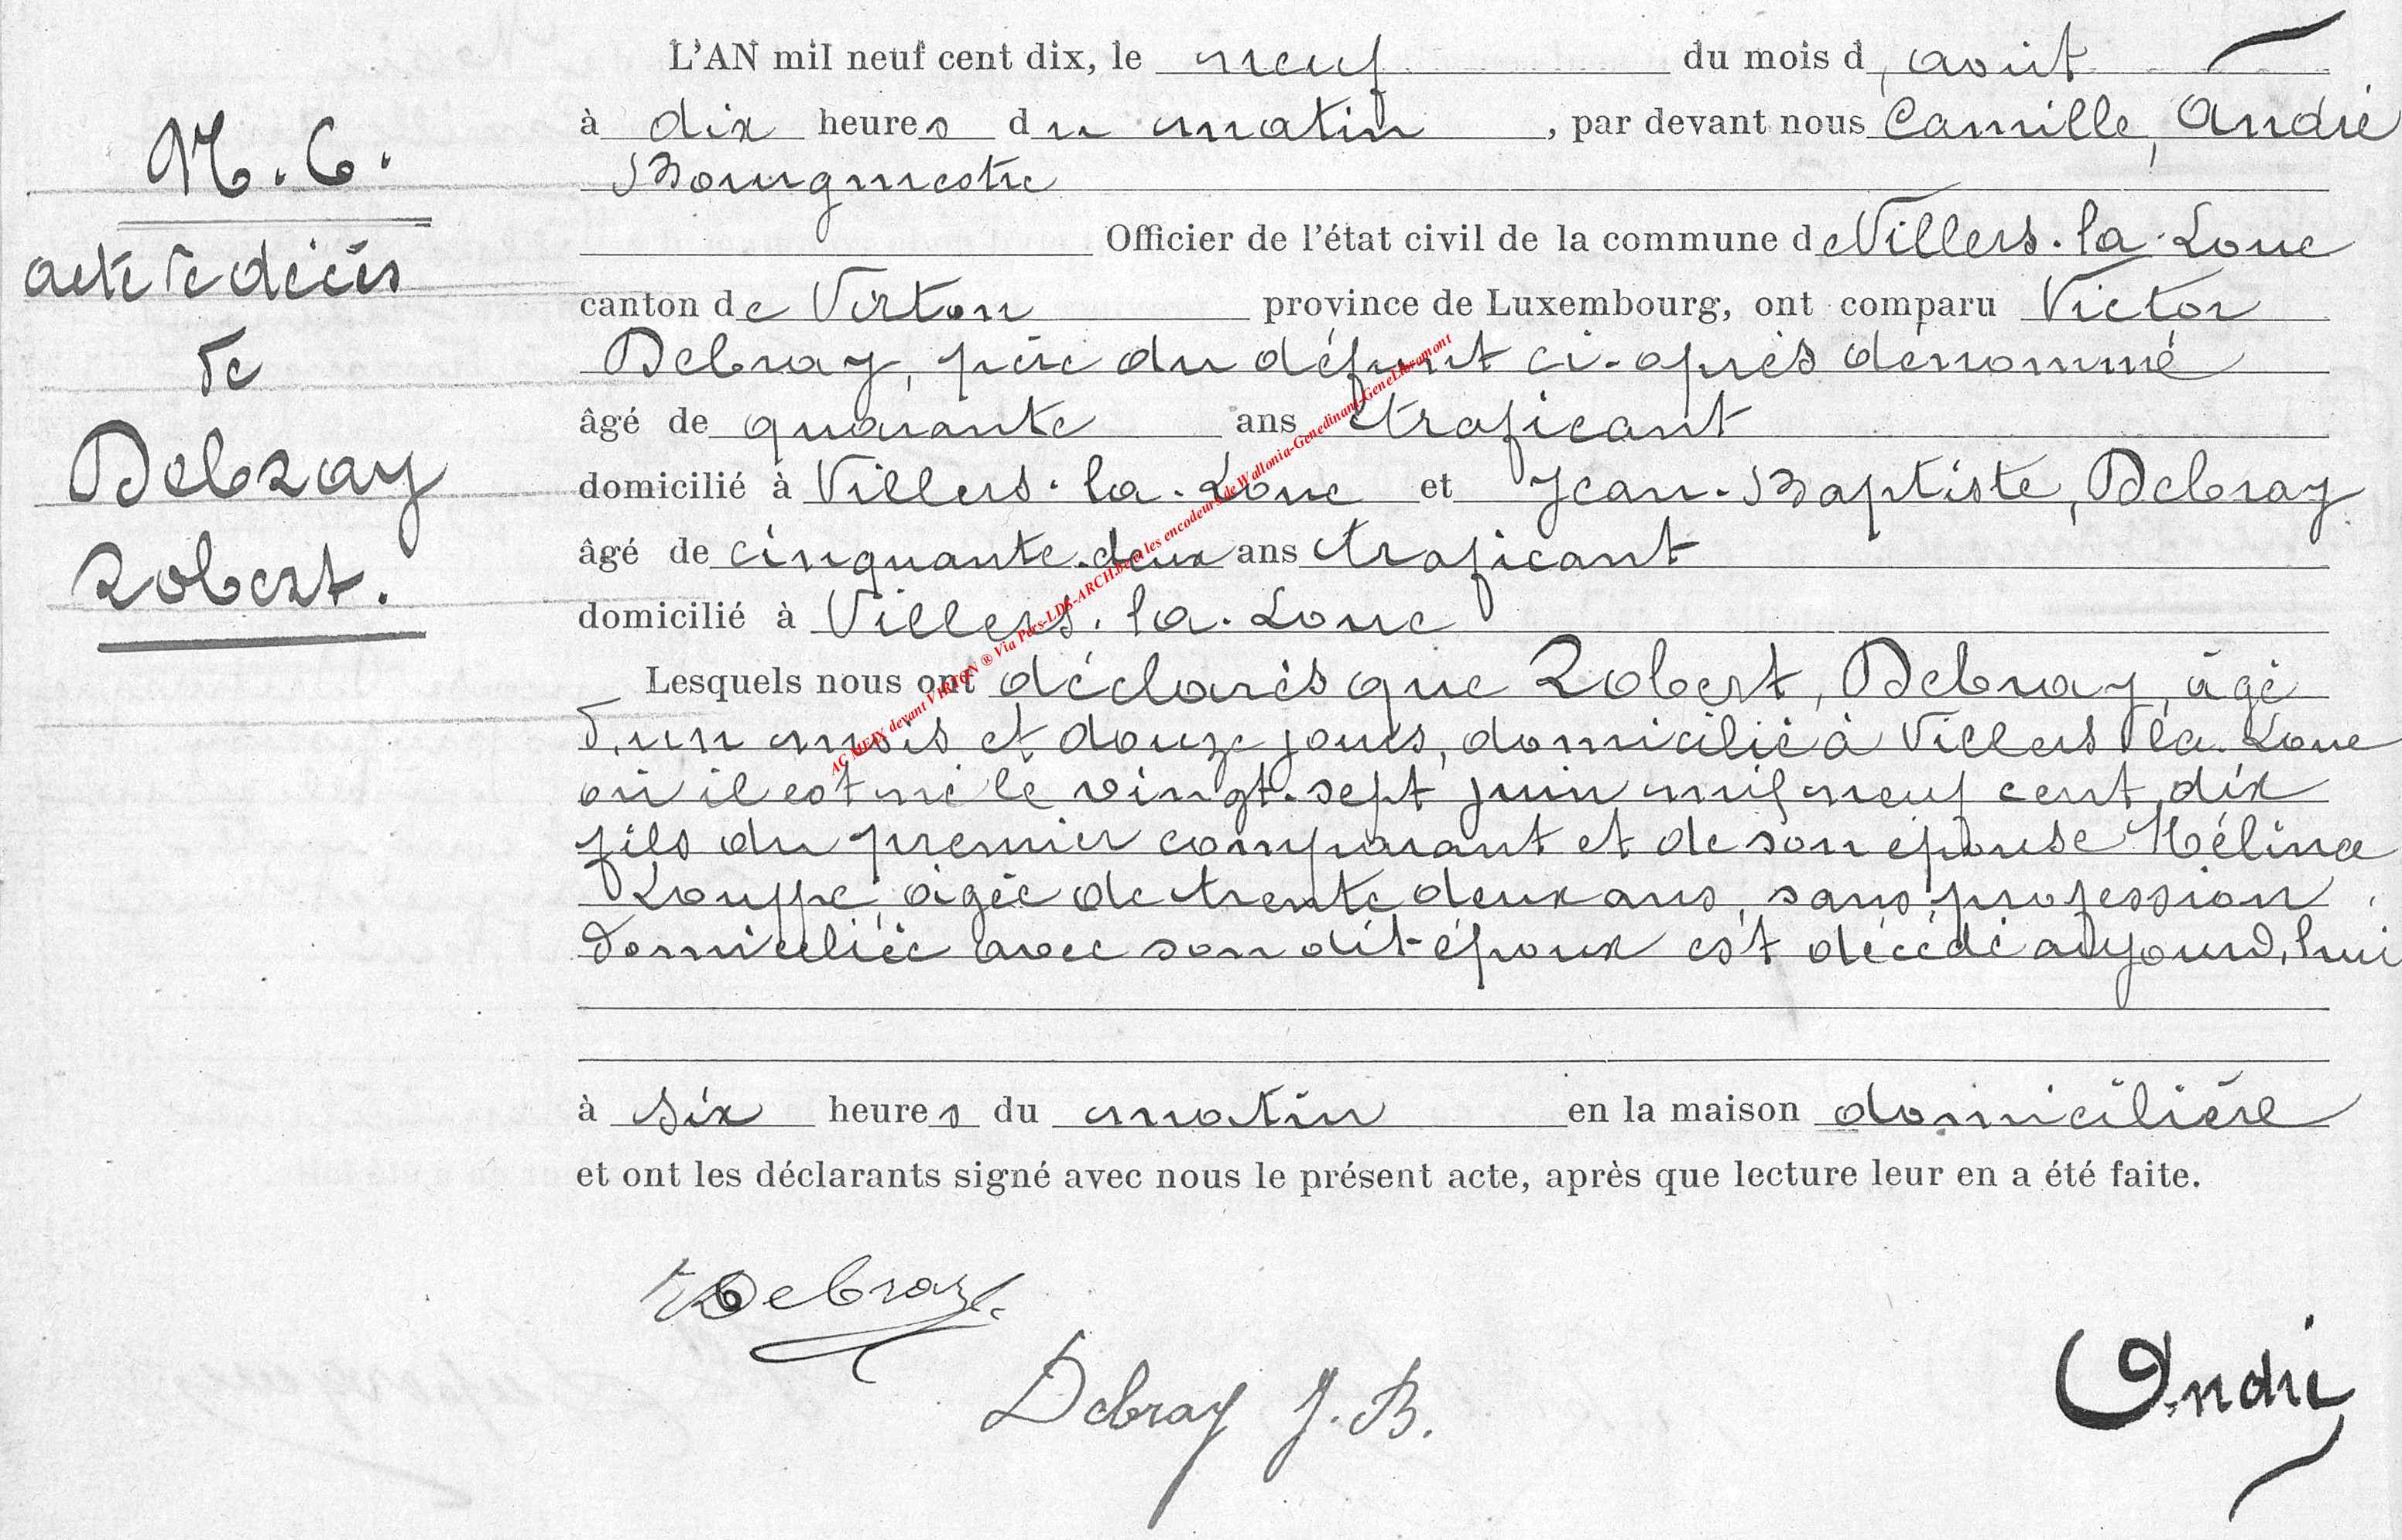 N. 6.
acte de décès
de
Debray
Robert.
L'AN mil neuf cent dix, le neuf du mois d'août
à dix heures du matin, par devant nous Camille, André
Bourgmestre
Officier de l'état civil de la commune de Villers-la-Loue
canton de Virton province de Luxembourg, ont comparu Victor
Debray, père du défunt ci-après dénommé
âgé de quarante ans traficant
domicilié à Villers-la-Loue et Jean-Baptiste, Debray
âgé de cinquante-deux ans traficant
domicilié à Villers-la-Loue
Lesquels nous ont déclarés que Robert, Debray, âgé
d'un mois et douze jours, domicilié à Villers la-Loue
où il est né le vingt-sept juin mil neuf cent dix
fils du premier comparant et de son épouse Hélina
Louppe, âgée de trente deux ans, sans profession,
domiciliée avec son dit-époux est décédé aujourd'hui
à six heures du matin en la maison domicilière
et ont les déclarants signé avec nous le présent acte, après que lecture leur en a été faite.
VDebray
Debray J.B.
André
AC MEIX devant VIRTON ® Via Pers-LDS-ARCH.be et les encodeurs de Wallonia-Genedinant-GeneLibramont